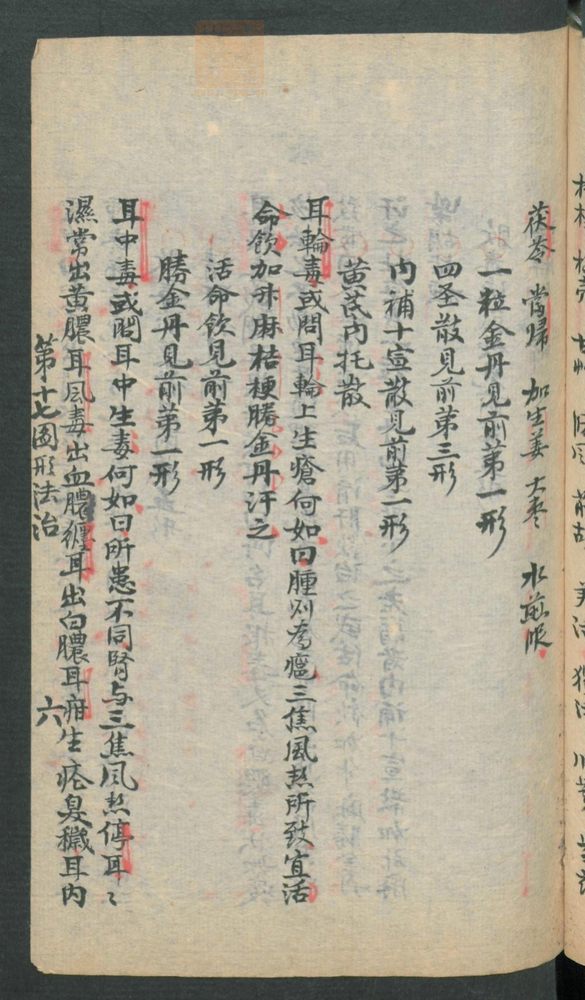 茯苓 當歸 加生姜 大枣 水煎服
一粒金丹見前第一形
四圣散見前第三形
内補十宣散見前第一形
黄芪内托散
耳輪毒或問耳輪上生瘡何如曰腫則為瘟三焦風热所致宜活
命飲加升麻桔梗勝金丹汗之
活命飲見前第一形
勝金丹見前第一形
耳中毒或問耳中生毒何如曰所患不同腎与三焦风热停耳〻
濕常出黄膿耳風毒出血膿纏耳出白膿耳疳生疮臭穢耳内
第十七图形法治 六